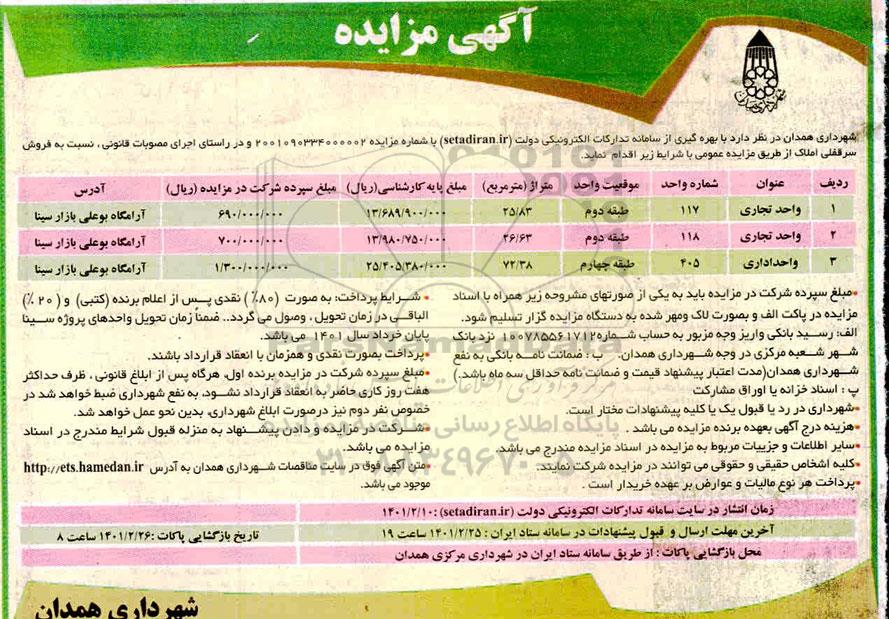 آگهی مزایده
شهرداری همدان در نظر دارد با بهره گیری از سامانه تدارکات الکترونیکی دولت (setadiran.ir) با شماره مزایده ۲۰۰۱۰۹۰۳۳۴۰۰۰۰۰۲ و در راستای اجرای مصوبات قانونی ، نسبت به فروش
سرقفلی املاک از طریق مزایده عمومی با شرایط زیر اقدام نماید.
ردیف عنوان شماره واحد موقعیت واحد متراژ (مترمربع) مبلغ پایه کارشناسی(ریال) مبلغ سپرده شرکت در مزایده (ریال) آدرس
۱ واحد تجاری ۱۱۷ طبقه دوم ۲۵/۸۳ ۱۳/۶۸۹/۹۰۰/۰۰۰ ۶۹۰/۰۰۰/۰۰۰ آرامگاه بوعلی بازار سینا
۲ واحد تجاری ۱۱۸ طبقه دوم ۲۶/۶۳ ۱۳/۹۸۰/۷۵۰/۰۰۰ ۷۰۰/۰۰۰/۰۰۰ آرامگاه بوعلی بازار سینا
۳ واحداداری ۴۰۵ طبقه چهارم ۷۲/۳۸ ۲۵/۴۰۵/۳۸۰/۰۰۰ ۱/۳۰۰/۰۰۰/۰۰۰ آرامگاه بوعلی بازار سینا
•مبلغ سپرده شرکت در مزایده باید به یکی از صورتهای مشروحه زیر همراه با اسناد
مزایده در پاکت الف و بصورت لاک ومهر شده به دستگاه مزایده گزار تسلیم شود.
الف: رسید بانکی واریز وجه مزبور به حساب شماره۱۰۰۷۸۵۵۶۱۷۱۲ نزد بانک
شهر شعبه مرکزی در وجه شهرداری همدان. ب : ضمانت نامه بانکی به نفع
شهرداری همدان(مدت اعتبار پیشنهاد قیمت و ضمانت نامه حداقل سه ماه باشد.)
پ : اسناد خزانه یا اوراق مشارکت
•شهرداری در رد یا قبول یک یا کلیه پیشنهادات مختار است.
•هزینه درج آگهی بعهده برنده مزایده می باشد .
•سایر اطلاعات و جزییات مربوط به مزایده در اسناد مزایده مندرج می باشد.
•کلیه اشخاص حقیقی و حقوقی می توانند در مزایده شرکت نمایند.
•پرداخت هر نوع مالیات و عوارض بر عهده خریدار است .
• شرایط پرداخت: به صورت (۸۰٪) نقدی پس از اعلام برنده (کتبی) و (۲۰ ٪)
الباقی در زمان تحویل ، وصول می گردد.. ضمناً زمان تحویل واحدهای پروژه سینا
پایان خرداد سال ۱۴۰۱ می باشد.
•پرداخت بصورت نقدی و همزمان با انعقاد قرارداد باشند.
•مبلغ سپرده شرکت در مزایده برنده اول، هرگاه پس از ابلاغ قانونی ، ظرف حداکثر
هفت روز کاری حاضر به انعقاد قرارداد نشود، به نفع شهرداری ضبط خواهد شد در
خصوص نفر دوم نیز درصورت ابلاغ شهرداری، بدین نحو عمل خواهد شد.
•شرکت در مزایده و دادن پیشنهاد به منزله قبول شرایط مندرج در اسناد
مزایده می باشد.
•متن آگهی فوق در سایت مناقصات شهرداری همدان به آدرس http://ets.hamedan.ir
موجود می باشد.
زمان انتشار در سایت سامانه تدارکات الکترونیکی دولت (setadiran.ir) :۱۴۰۱/۲/۱۰
آخرین مهلت ارسال و قبول پیشنهادات در سامانه ستاد ایران : ۱۴۰۱/۲/۲۵ ساعت ۱۹ تاریخ بازگشایی پاکات :۱۴۰۱/۲/۲۶ ساعت ۸
محل بازگشایی پاکات : از طریق سامانه ستاد ایران در شهرداری مرکزی همدان
شهرداری همدان